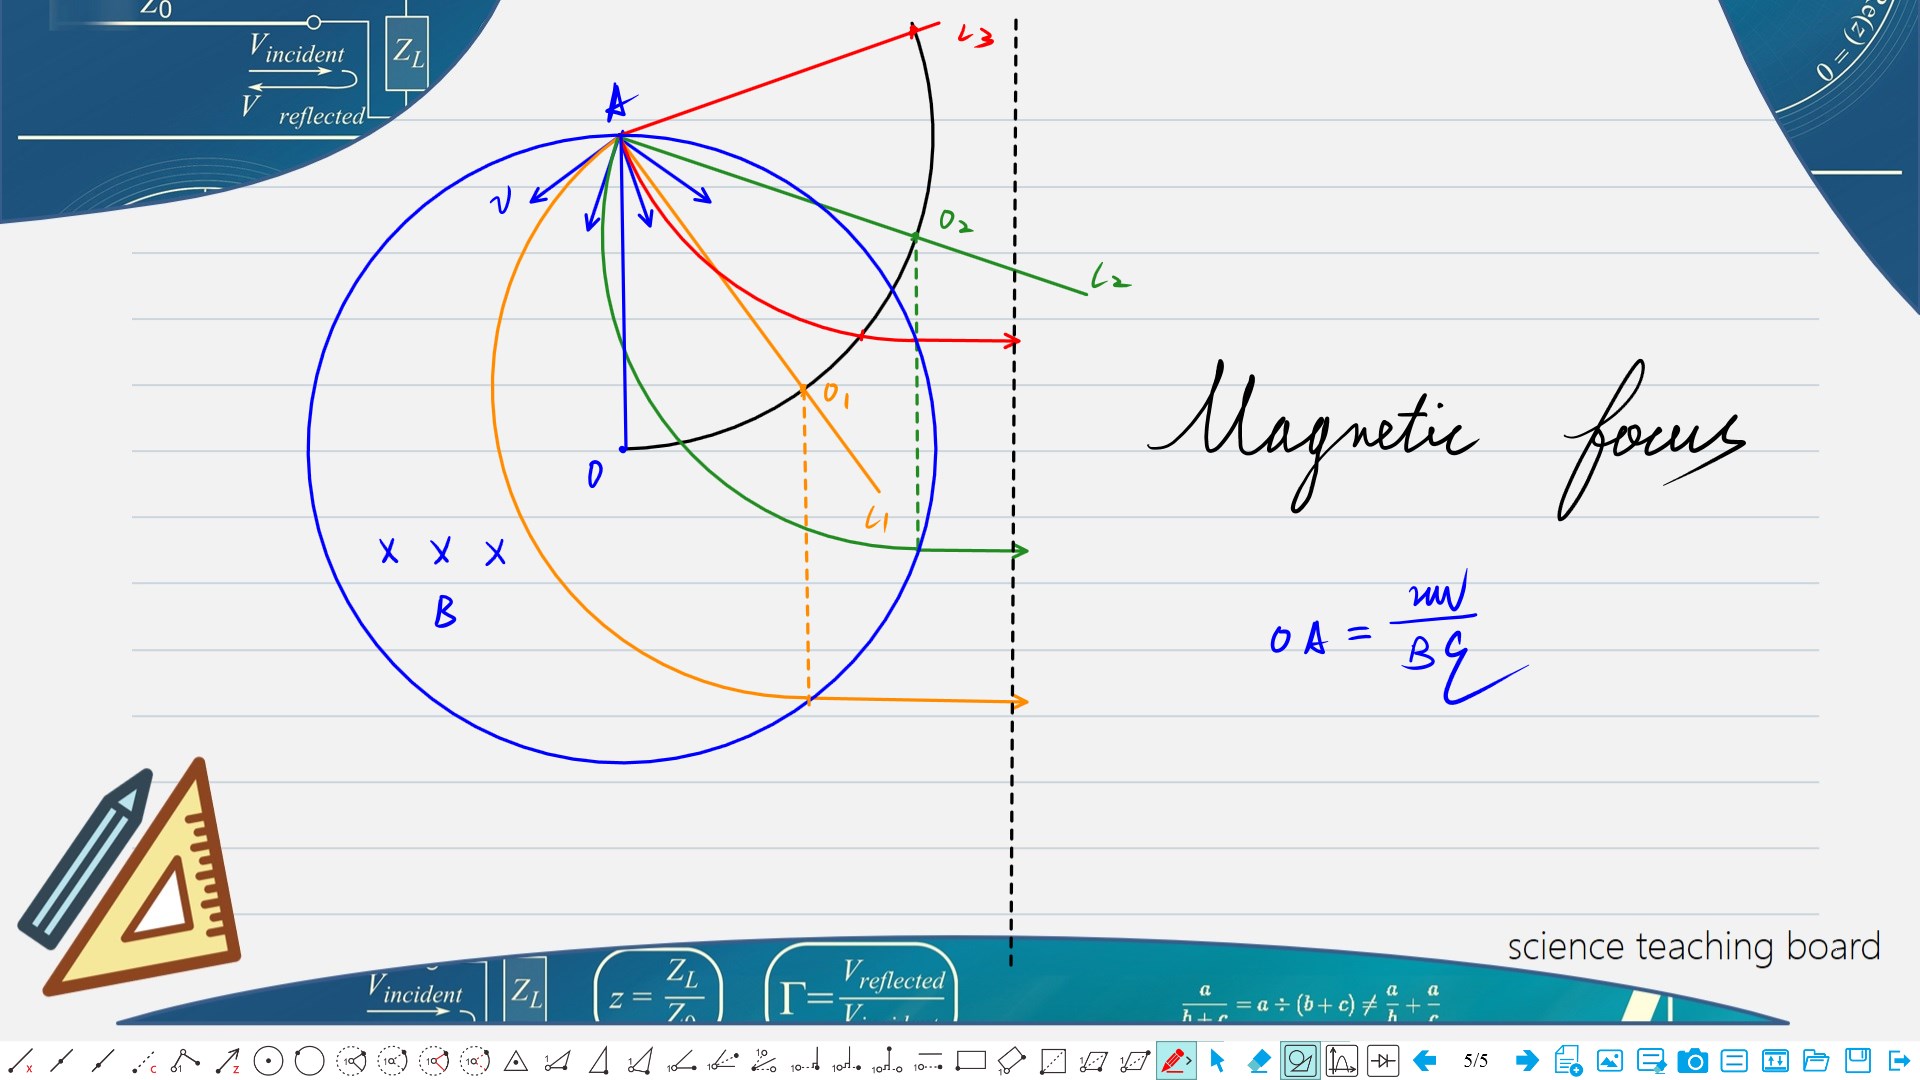 Z0
Vincident
ZL
V reflected
Re(z) = 0
A
L3
v
O2
L2
O1
O
L1
x x x
B
Magnetic focus
OA = mv / Bq
science teaching board
Vincident
ZL
z = ZL / Z0
Γ = Vreflected / Vincident
a / b + c = a ÷ (b + c) ≠ a / b + a / c
5/5